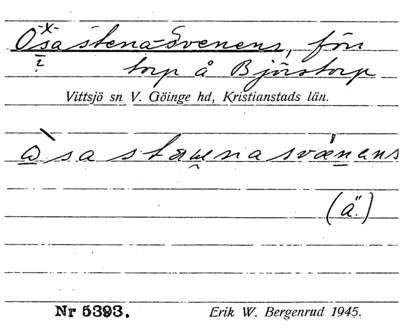 Osastena-Svenens, förr
torp å Bjärstorp
Vittsjö sn V. Göinge hd, Kristianstads län.
(ä.)
Nr 5393. Erik W. Bergenrud 1945.